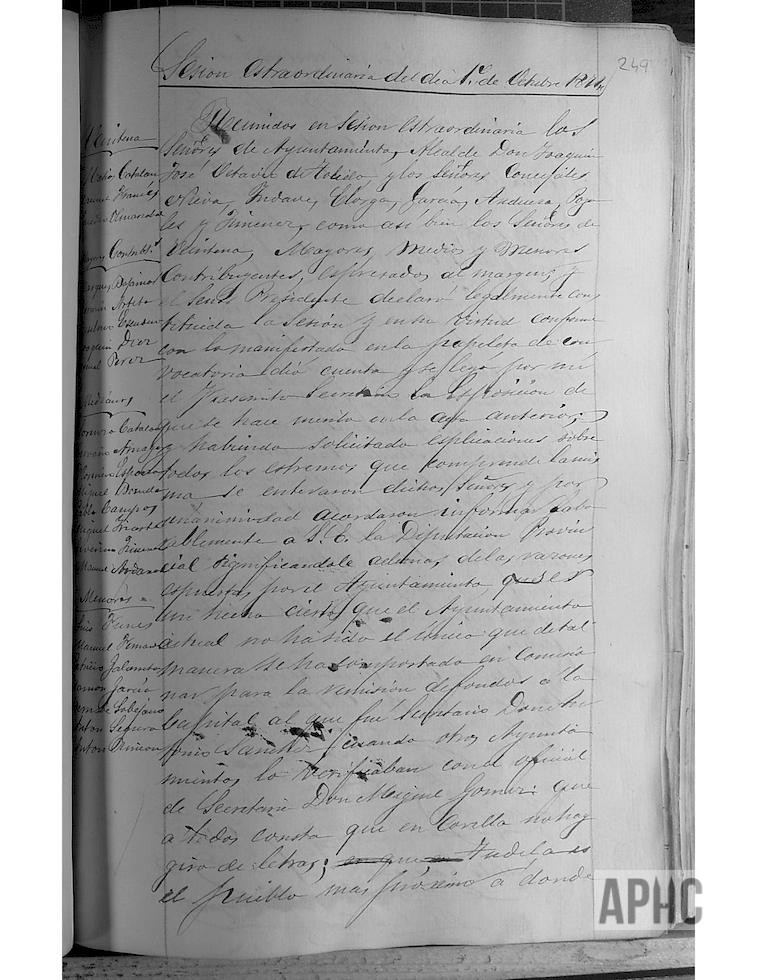 249
Sesion estraordinaria del dia 1º de Octubre 18
Reunidos en sesion estraordinaria los
Señores de Ayuntamiento, Alcalde Don Joaquin
José Octavio de Toledo y los Señores Concejales
Oliva, Yndave, Elorga, Garcia, Andueza,
les y Gimenez, como asi bien los Señores de
Veintena, Mayores, Medios y Menores
Contribuyentes, espresados al margen, y
el Señor Presidente declaró legalmente cons
tituida la Sesión y en su virtud conforme
con lo manifestado en la papeleta de con
vocatoria dió cuenta y se leyo por mi
el Ynfrascrito Secretario la Esposición de
que se hace merito en la acta anterior,
y habiendo solicitado esplicaciones sobre
todos los estremos que comprende la mis
ma se enteraron dichos Señores y por
unanimidad acordaron informar favo
rablemente a S. E. la Diputacion Provin
cial significandole ademas de las razones
espuestas por el Ayuntamiento, que es
un hecho cierto que el Ayuntamiento
actual no ha sido el único que de tal
manera se ha comportado en comisio
nar para la remision de fondos a la
Capital al que fué Secretario Don
Sanchez, cuando otros Ayunta
mientos lo verificaban con el oficial
de Secretaria Don Miguel Gomez: que
a todos consta que en Corella no hay
giro de letras; Tudela es
el pueblo mas próximo a donde
Veintena
Catalan
Francés
Mayores Contribs.
Espinos
Escudero
Joaquin Diez
Perez
Medianos
Catalan
Amigo
Miguel
Pablo Campos
Miguel
Gimenez
Manuel
Menores
Luis Funes
Manuel
Patricio
Ramon Garcia
de
Anton Segura
Anton Rincon
APHC